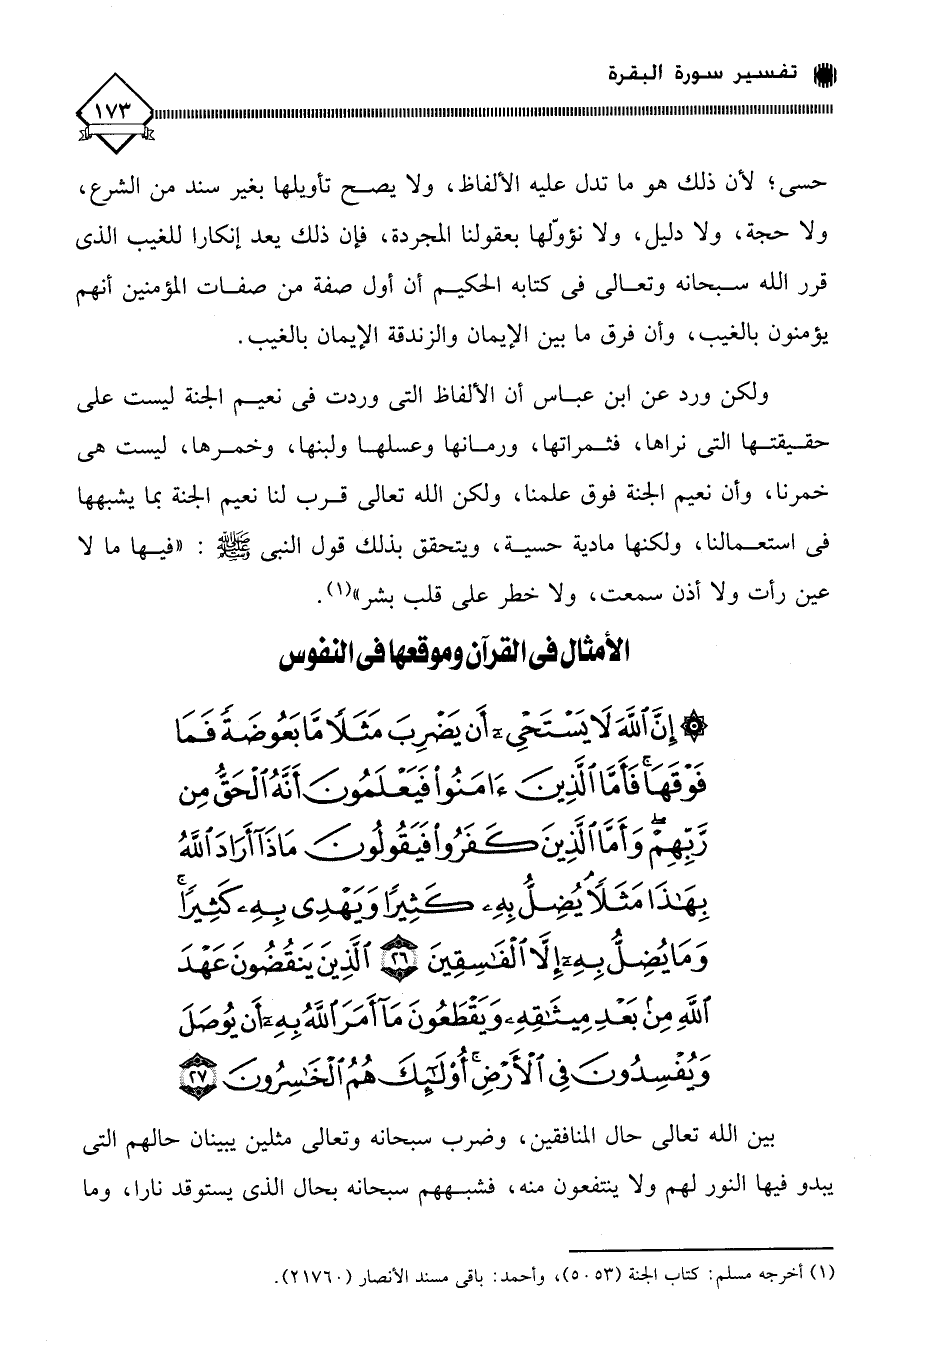 تفسير سورة البقرة
١٧٣
حسى؛ لأن ذلك هو ما تدل عليه الألفاظ، ولا يصح تأويلها بغير سند من الشرع،
ولا حجة، ولا دليل، ولا نؤوّلها بعقولنا المجردة، فإن ذلك يعد إنكارا للغيب الذى
قرر الله سبحانه وتعالى فى كتابه الحكيم أن أول صفة من صفات المؤمنين أنهم
يؤمنون بالغيب، وأن فرق ما بين الإيمان والزندقة الإيمان بالغيب.
ولكن ورد عن ابن عباس أن الألفاظ التى وردت فى نعيم الجنة ليست على
حقيقتها التى نراها، فثمراتها، ورمانها وعسلها ولبنها، وخمرها، ليست هى
خمرنا، وأن نعيم الجنة فوق علمنا، ولكن الله تعالى قرب لنا نعيم الجنة بما يشبهها
فى استعمالنا، ولكنها مادية حسية، ويتحقق بذلك قول النبى ﷺ : «فيها ما لا
عين رأت ولا أذن سمعت، ولا خطر على قلب بشر»(١).
الأمثال فى القرآن وموقعها فى النفوس
۞ إِنَّ ٱللَّهَ لَا يَسْتَحْىِۦٓ أَن يَضْرِبَ مَثَلًا مَّا بَعُوضَةً فَمَا
فَوْقَهَا ۚ فَأَمَّا ٱلَّذِينَ ءَامَنُوا۟ فَيَعْلَمُونَ أَنَّهُ ٱلْحَقُّ مِن
رَّبِّهِمْ ۖ وَأَمَّا ٱلَّذِينَ كَفَرُوا۟ فَيَقُولُونَ مَاذَآ أَرَادَ ٱللَّهُ
بِهَـٰذَا مَثَلًا ۘ يُضِلُّ بِهِۦ كَثِيرًا وَيَهْدِى بِهِۦ كَثِيرًا ۚ
وَمَا يُضِلُّ بِهِۦٓ إِلَّا ٱلْفَـٰسِقِينَ ٢٦ ٱلَّذِينَ يَنقُضُونَ عَهْدَ
ٱللَّهِ مِنۢ بَعْدِ مِيثَـٰقِهِۦ وَيَقْطَعُونَ مَآ أَمَرَ ٱللَّهُ بِهِۦٓ أَن يُوصَلَ
وَيُفْسِدُونَ فِى ٱلْأَرْضِ ۚ أُو۟لَـٰٓئِكَ هُمُ ٱلْخَـٰسِرُونَ ٢٧
بين الله تعالى حال المنافقين، وضرب سبحانه وتعالى مثلين يبينان حالهم التى
يبدو فيها النور لهم ولا ينتفعون منه، فشبههم سبحانه بحال الذى يستوقد نارا، وما
(١) أخرجه مسلم: كتاب الجنة (٥٠٥٣)، وأحمد: باقى مسند الأنصار (٢١٧٦٠).